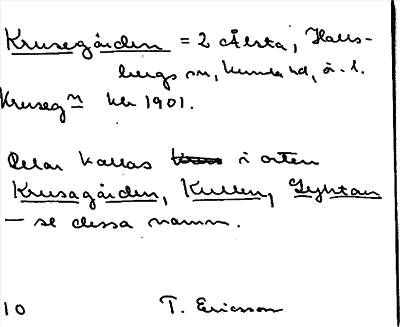 Krusegården = 2 Ålsta, Halls-
bergs sn, Kumla hd, ö. l.
Kruseg~n~ kbr 1901.
Delar kallas i orten
Krusagården, Kullen, Lyktan
— se dessa namn.
10 T. Ericsson